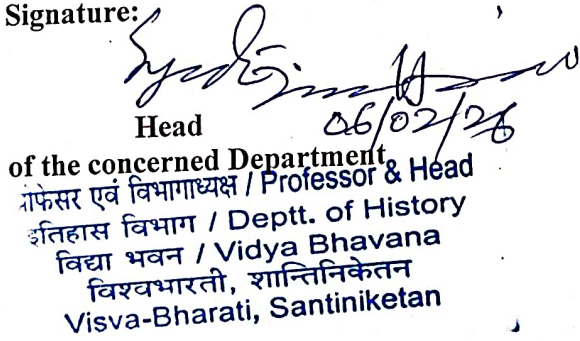 Signature:
06/02/26
Head
of the concerned Department
प्रोफेसर एवं विभागाध्यक्ष / Professor & Head
इतिहास विभाग / Deptt. of History
विद्या भवन / Vidya Bhavana
विश्वभारती, शान्तिनिकेतन
Visva-Bharati, Santiniketan